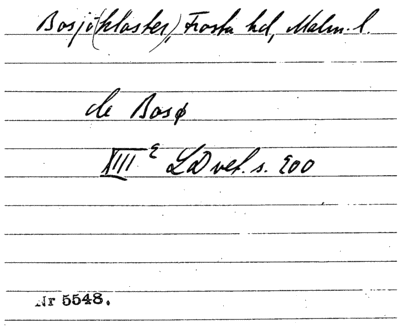 Bosjö(kloster), Frosta hd, Malm. l.
de Bosø
XIII e LD vet. s. 200
Nr 5548.